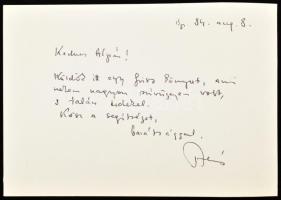 Bp. 84. aug. 8.
Kedves Árpád!
Küldök itt egy friss könyvet, ami
nekem nagyon szívügyem volt,
s talán érdekel.
Kösz a segítséget,
barátsággal